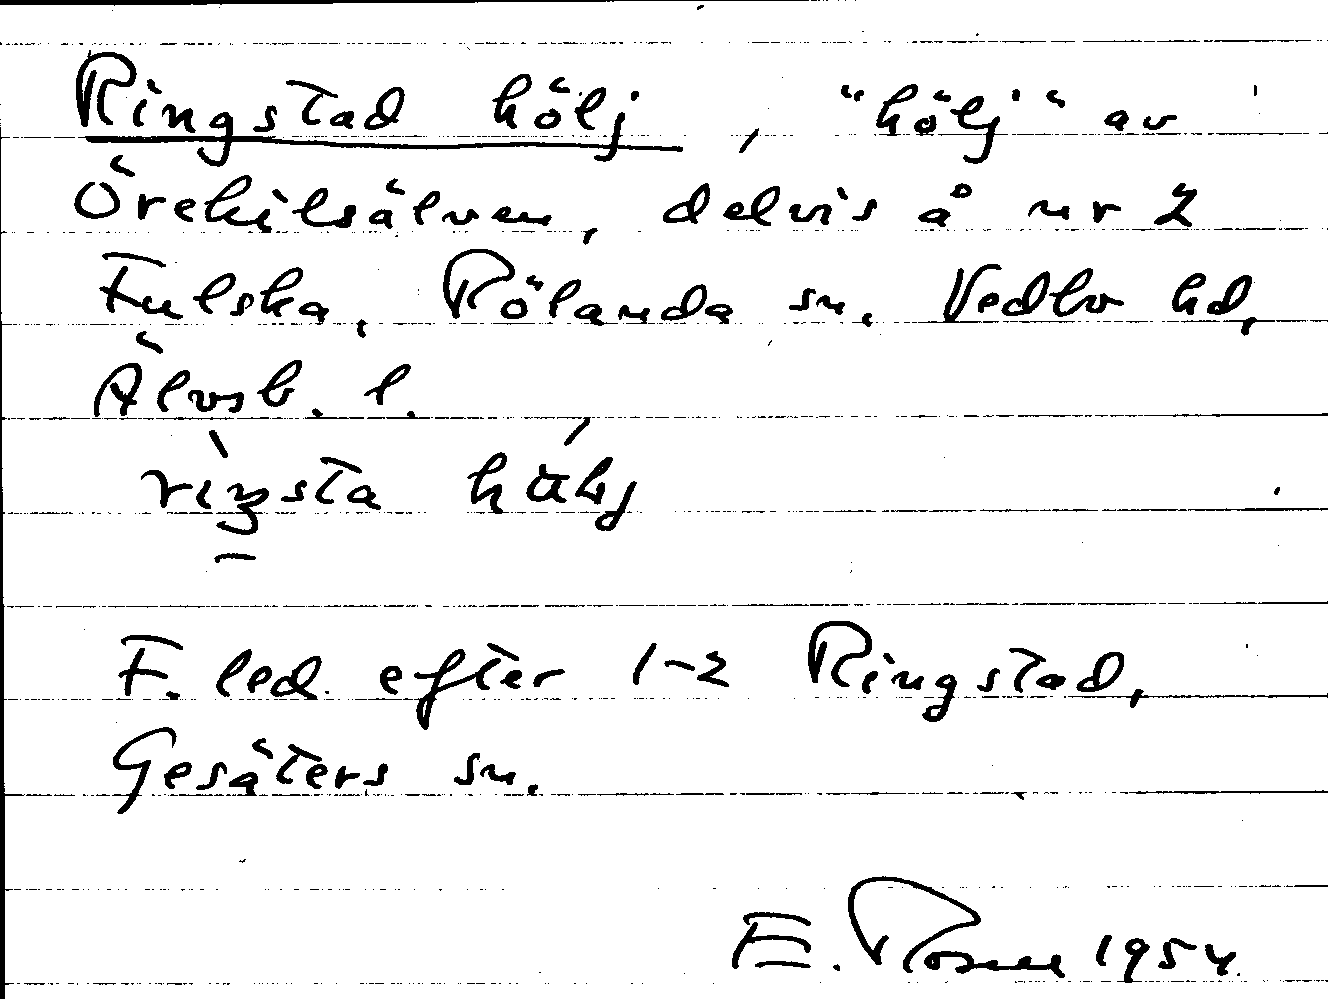 Ringstad hölj, "hölj" av
Örekilsälven, delvis å nr 2
Fulska, Rölanda sn. Vedbo hd,
Älvsb. l.
F. led efter 1-2 Ringstad,
Gesäters sn.
E. Rosell 1954